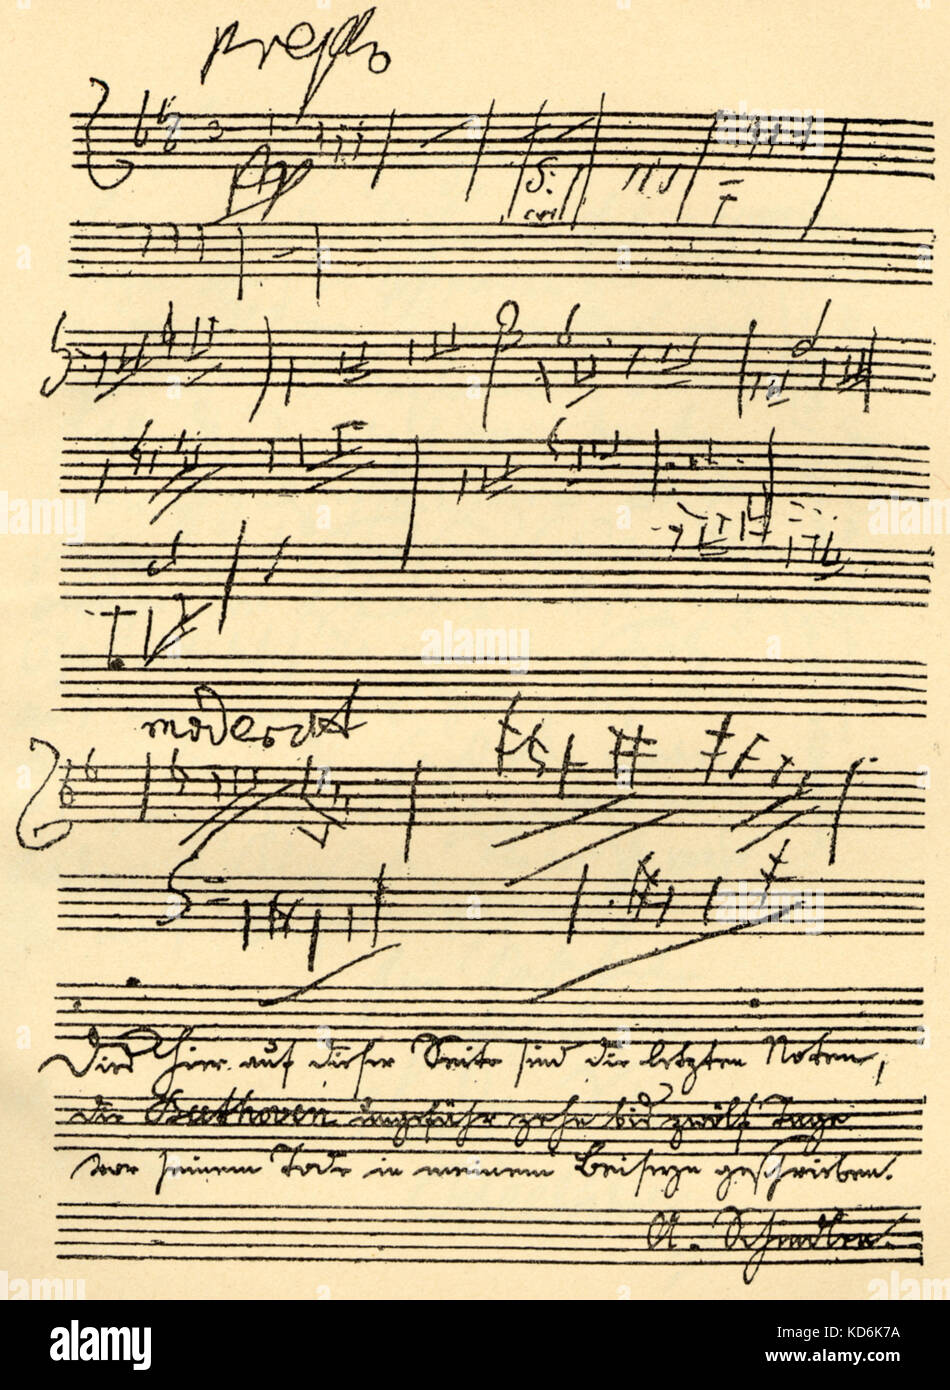 presto
3
S:
moderat
6
8
Dies hier auf dieser Seite sind die letzten Noten,
die Beethoven ungefähr zehn bis zwölf Tage
vor seinem Tode in meinem Beiseyn geschrieben.
A. Schindler.
alamy
Image ID: KD6K7A
www.alamy.com